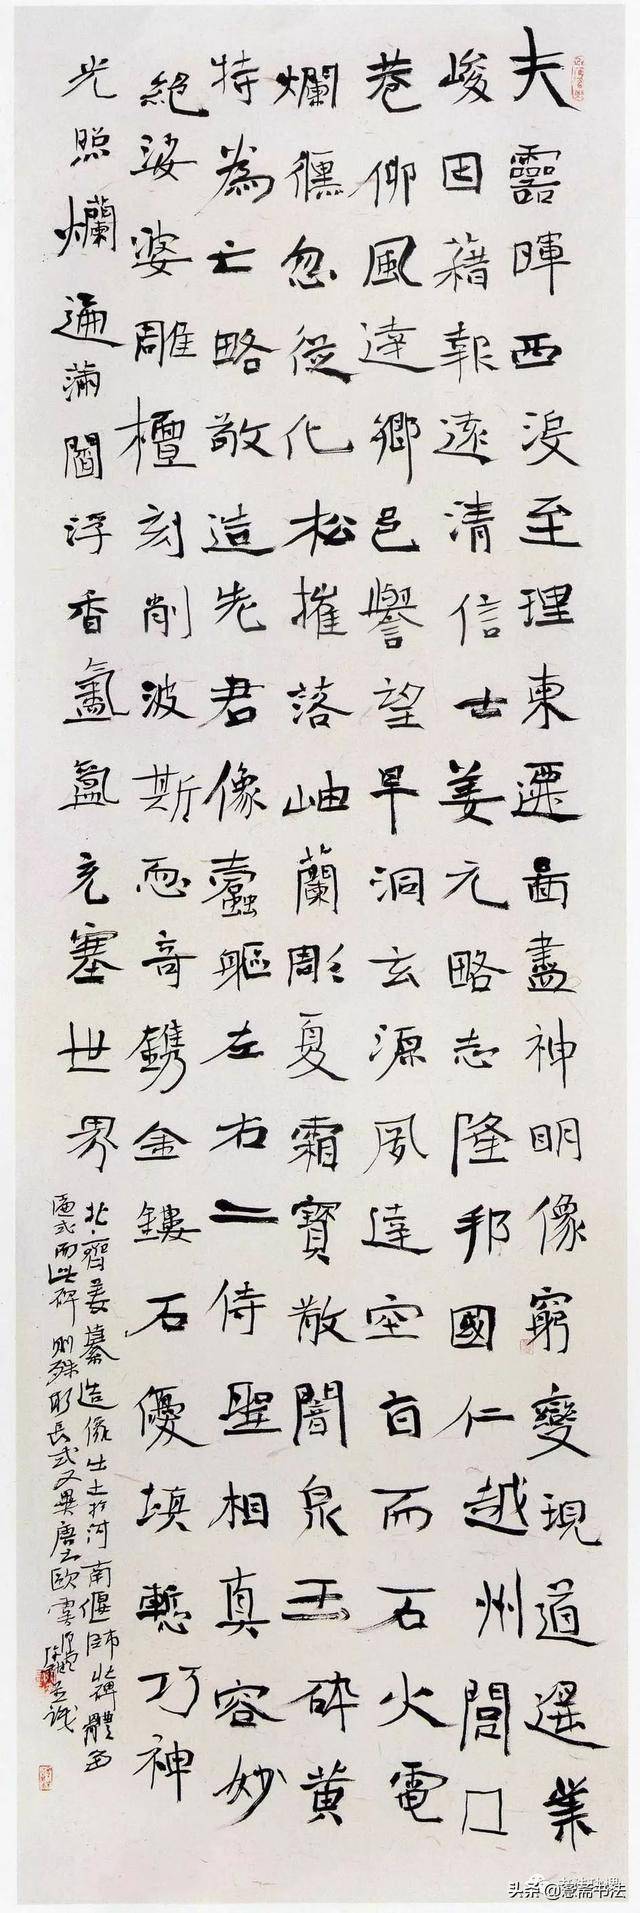 夫靈暉西沒至理東遷啚盡神明像窮變現道業
峻因藉報遠清信士姜元略志隆邦國仁越州閭口
巷仰風達鄉邑譽望早洞玄源夙達空旨而石火電
爛儵忽從化松摧落岫蘭彫夏霜寶散闇泉玉碎黃
特為亡略敬造先君像壹軀左右二侍聖相真容妙
絕娑婆雕檀刻削波斯恧奇鐫金鏤石優填慙巧神
光照爛遍滿閻浮香氣氳充塞世界
北齊姜纂造像出土於河南偃師北碑體多
匾式而此碑則殊形長式又異唐之歐虞
头条 @斋书法